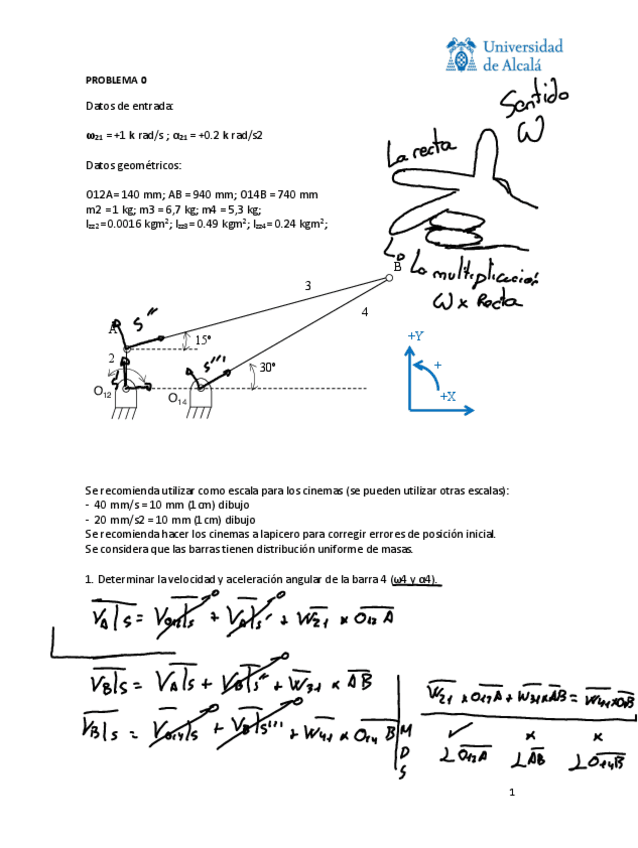 Universidad
de Alcalá
PROBLEMA 0
Datos de entrada:
ω21 = +1 k rad/s ; α21 = +0.2 k rad/s2
Datos geométricos:
O12A= 140 mm; AB = 940 mm; O14B = 740 mm
m2 =1 kg; m3 = 6,7 kg; m4 = 5,3 kg;
Izz2=0.0016 kgm²; Izz3= 0.49 kgm²; Izz4= 0.24 kgm²;
Sentido
W
La recta
Lo multiplicación
W x Recta
B
3
4
A
S''
15º
2
S'''
30º
S
O12
O14
+Y
+
+X
Se recomienda utilizar como escala para los cinemas (se pueden utilizar otras escalas):
- 40 mm/s = 10 mm (1cm) dibujo
- 20 mm/s2 = 10 mm (1cm) dibujo
Se recomienda hacer los cinemas a lapicero para corregir errores de posición inicial.
Se considera que las barras tienen distribución uniforme de masas.
1. Determinar la velocidad y aceleración angular de la barra 4 (ω4 y α4).
VA|s = VO12|s + VA|s' + W21 x O12 A
VB|s = VA|s + VB|s'' + W31 x AB
VB|s = VO14|s + VB|s''' + W41 x O14 B
W21 x O12A + W31 x AB = W41 x O14B
M ✓ x x
D ⊥ O12A ⊥ AB ⊥ O14B
S
1